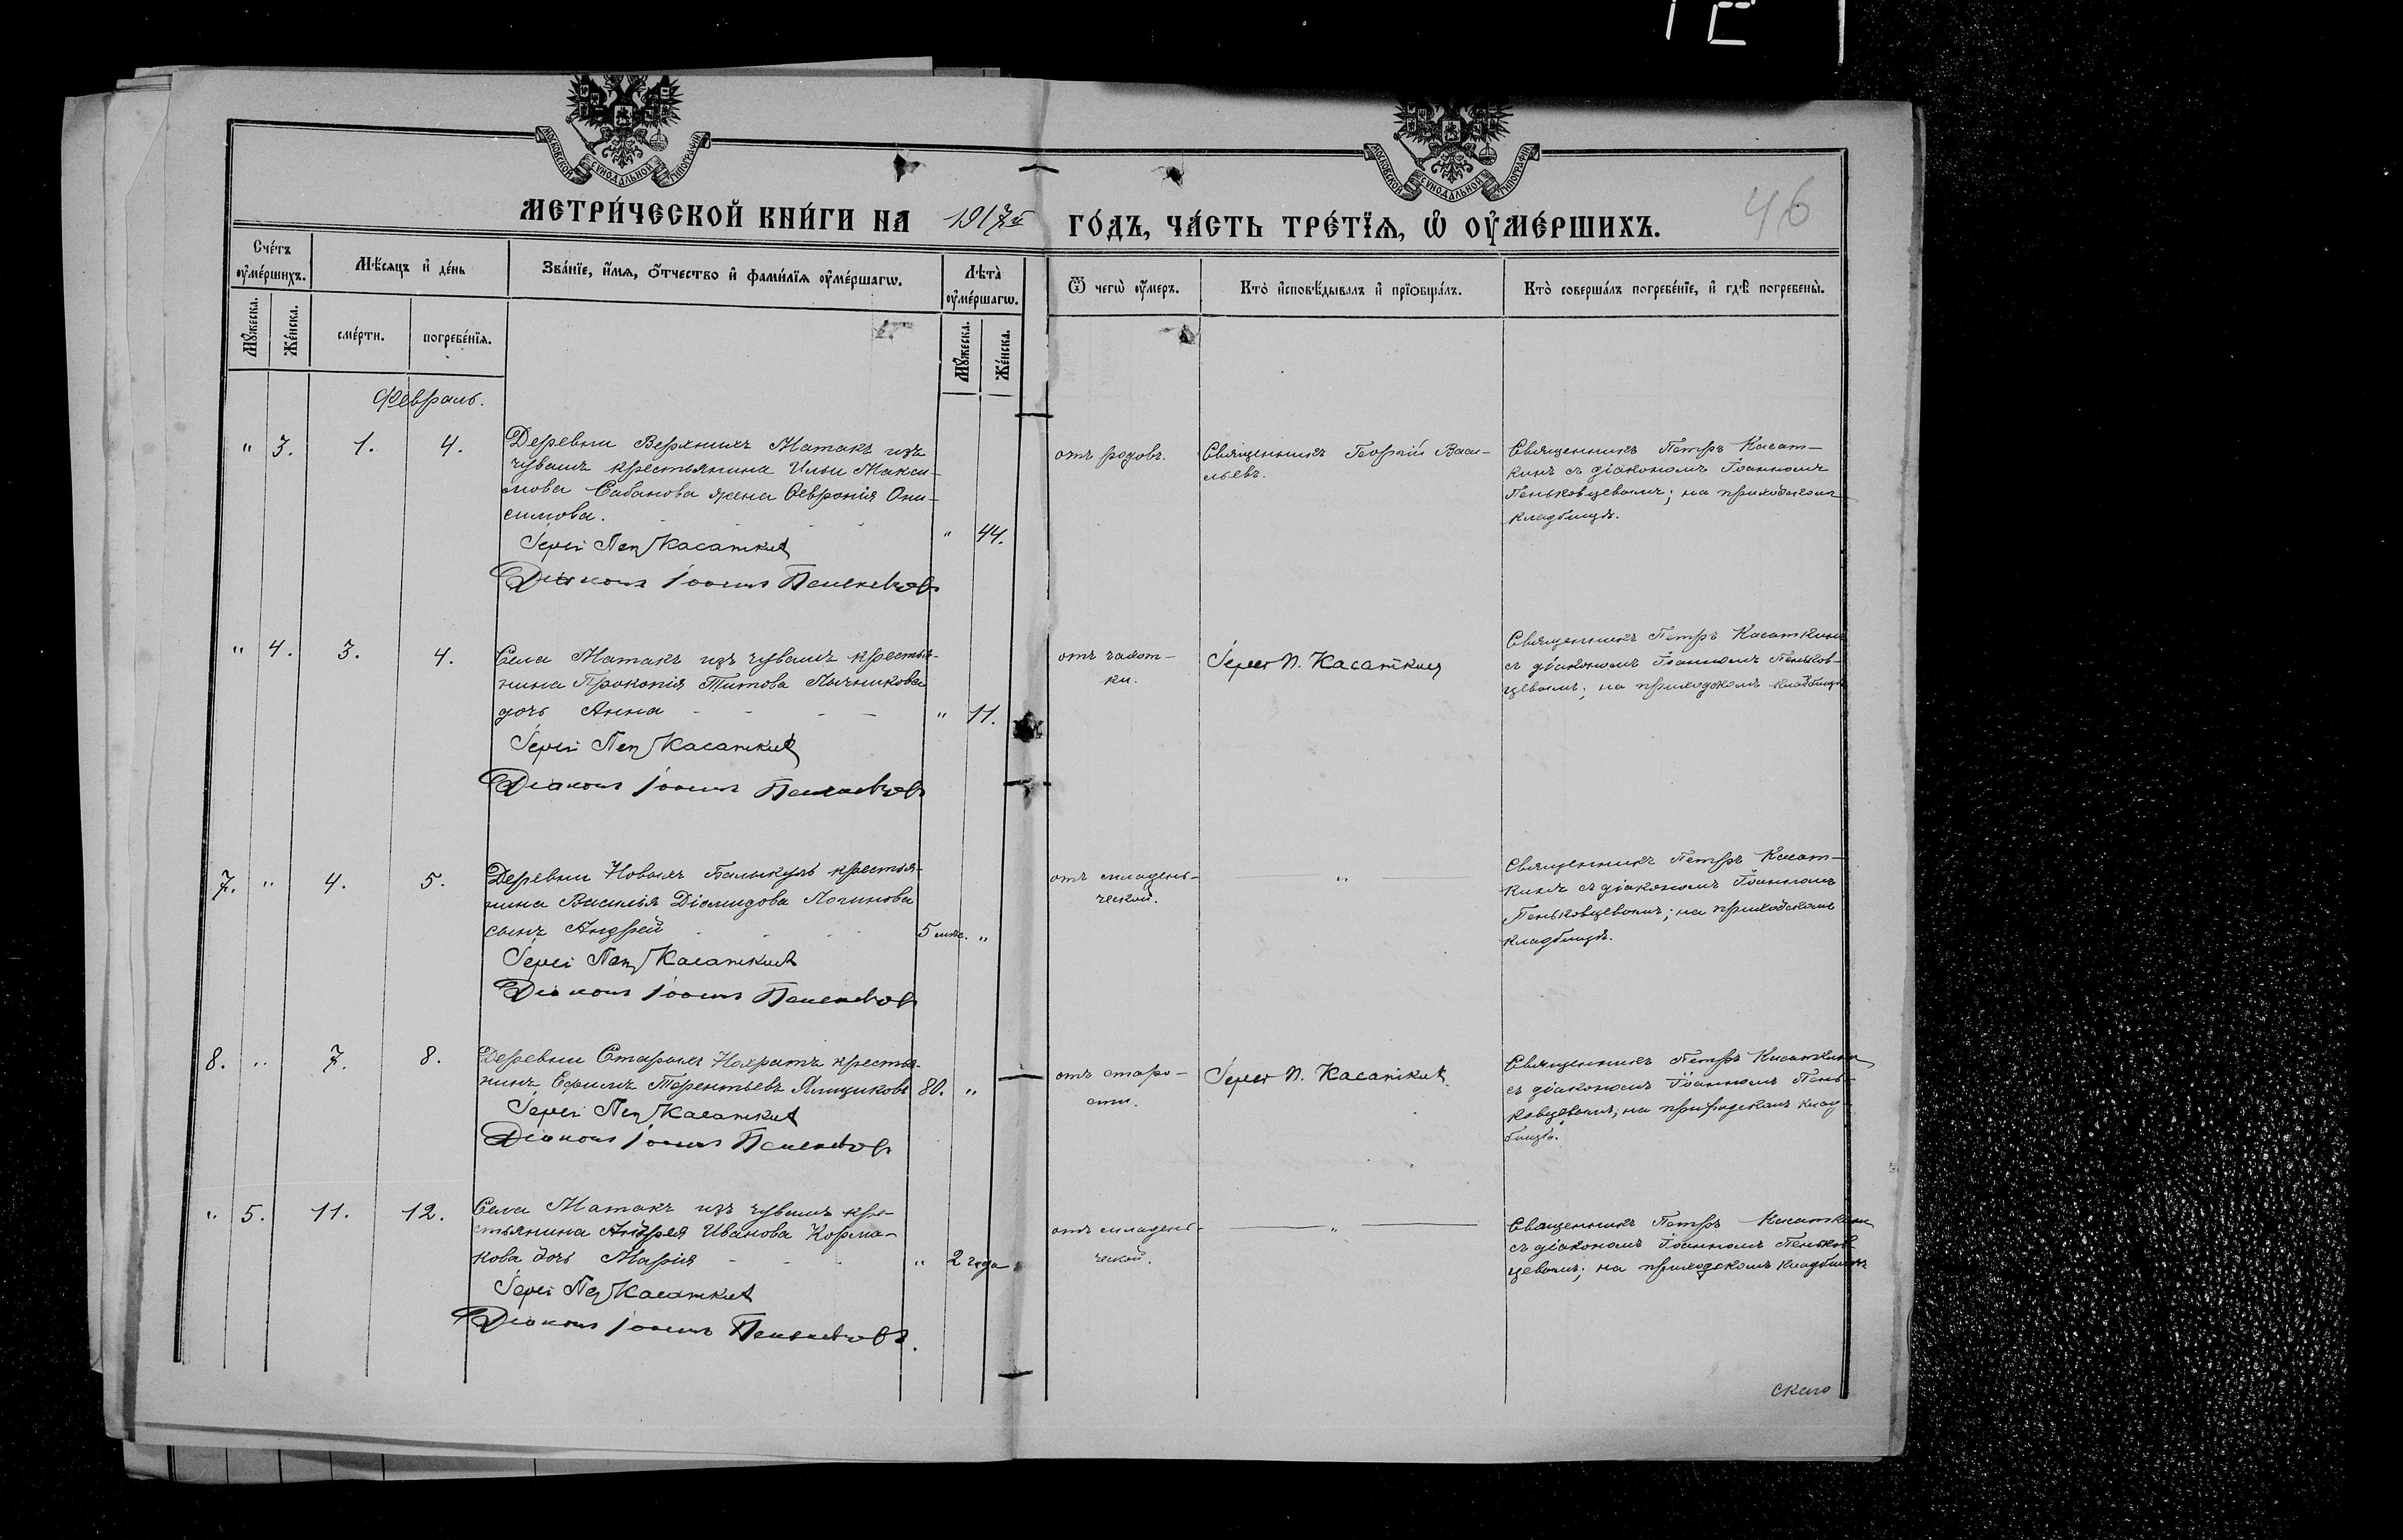 МОСКОВСКОЙ СѴНОДАЛЬНОЙ ТИПОГРАФІИ
МОСКОВСКОЙ СѴНОДАЛЬНОЙ ТИПОГРАФІИ
МЕТРИ́ЧЕСКОЙ КНИ́ГИ НА 1917й ГО́ДЪ, ЧА́СТЬ ТРЕ́ТЇѦ, Ѡ҆ ОУ҆МЕ́РШИХЪ.
46
Сче́тъ оу҆ме́ршихъ.
Мѣ́сяцъ и҆ де́нь
Зва́нїе, и҆́мѧ, ѻ҆́тчество и҆ фами́лїѧ оу҆ме́ршагѡ.
Лѣ́та оу҆ме́ршагѡ.
Ѿ чегѡ̀ оу҆́меръ.
Кто̀ и҆сповѣ́дывалъ и҆ прїѻбща́лъ.
Кто̀ соверша́лъ погребе́нїе, и҆ гдѣ̀ погребены̀.
Мꙋ́жеска.
Же́нска.
сме́рти.
погребе́нїѧ.
Мꙋ́жеска.
Же́нска.
Февраль.
" 3. 1. 4.
Деревни Верхнихъ Матакъ изъ
чувашъ крестьянина Ильи Макси-
мова Сабанова жена Ѳевронія Они-
симова. " 44.
Іерей Пет Касаткинъ
Діаконъ Іоаннъ Пеньковцевъ
отъ родовъ.
Священникъ Георгій Васи-
льевъ.
Священникъ Петръ Касат-
кинъ съ діакономъ Іоанномъ
Пеньковцевымъ; на приходскомъ
кладбищѣ.
" 4. 3. 4.
Села Матакъ изъ чувашъ крестья-
нина Прокопія Титова
дочь Анна " 11.
Іерей Пет Касаткинъ
Діаконъ Іоаннъ Пеньковцевъ
отъ чахот-
ки.
Іерей П. Касаткинъ
Священникъ Петръ Касаткинъ
съ діакономъ Іоанномъ Пеньков-
цевымъ; на приходскомъ кладбищѣ
7. " 4. 5.
Деревни Новыхъ Балыкуль крестья-
нина Василія Діомидова Логинова
сынъ Андрей 5 мѣс. "
Іерей Пет Касаткинъ
Діаконъ Іоаннъ Пеньковцевъ
отъ младень-
ческой.
"
Священникъ Петръ Касат-
кинъ съ діакономъ Іоанномъ
Пеньковцевымъ; на приходскомъ
кладбищѣ.
8. " 7. 8.
Деревни Старыхъ Нохратъ крестья-
нинъ Ефимъ Терентьевъ Ямщиковъ 80. "
Іерей Пет Касаткинъ
Діаконъ Іоаннъ Пеньковцевъ
отъ старо-
сти.
Іерей П. Касаткинъ
Священникъ Петръ Касаткинъ
съ діакономъ Іоанномъ Пень-
ковцевымъ; на приходскомъ клад-
бищѣ.
" 5. 11. 12.
Села Матакъ изъ чувашъ кре-
стьянина Андрея Иванова Корма-
кова дочь Марія " 2 года
Іерей Пет Касаткинъ
Діаконъ Іоаннъ Пеньковцевъ.
отъ младень-
ческой.
"
Священникъ Петръ Касаткинъ
съ діакономъ Іоанномъ Пеньков-
цевымъ; на приходскомъ кладбищѣ
скаго